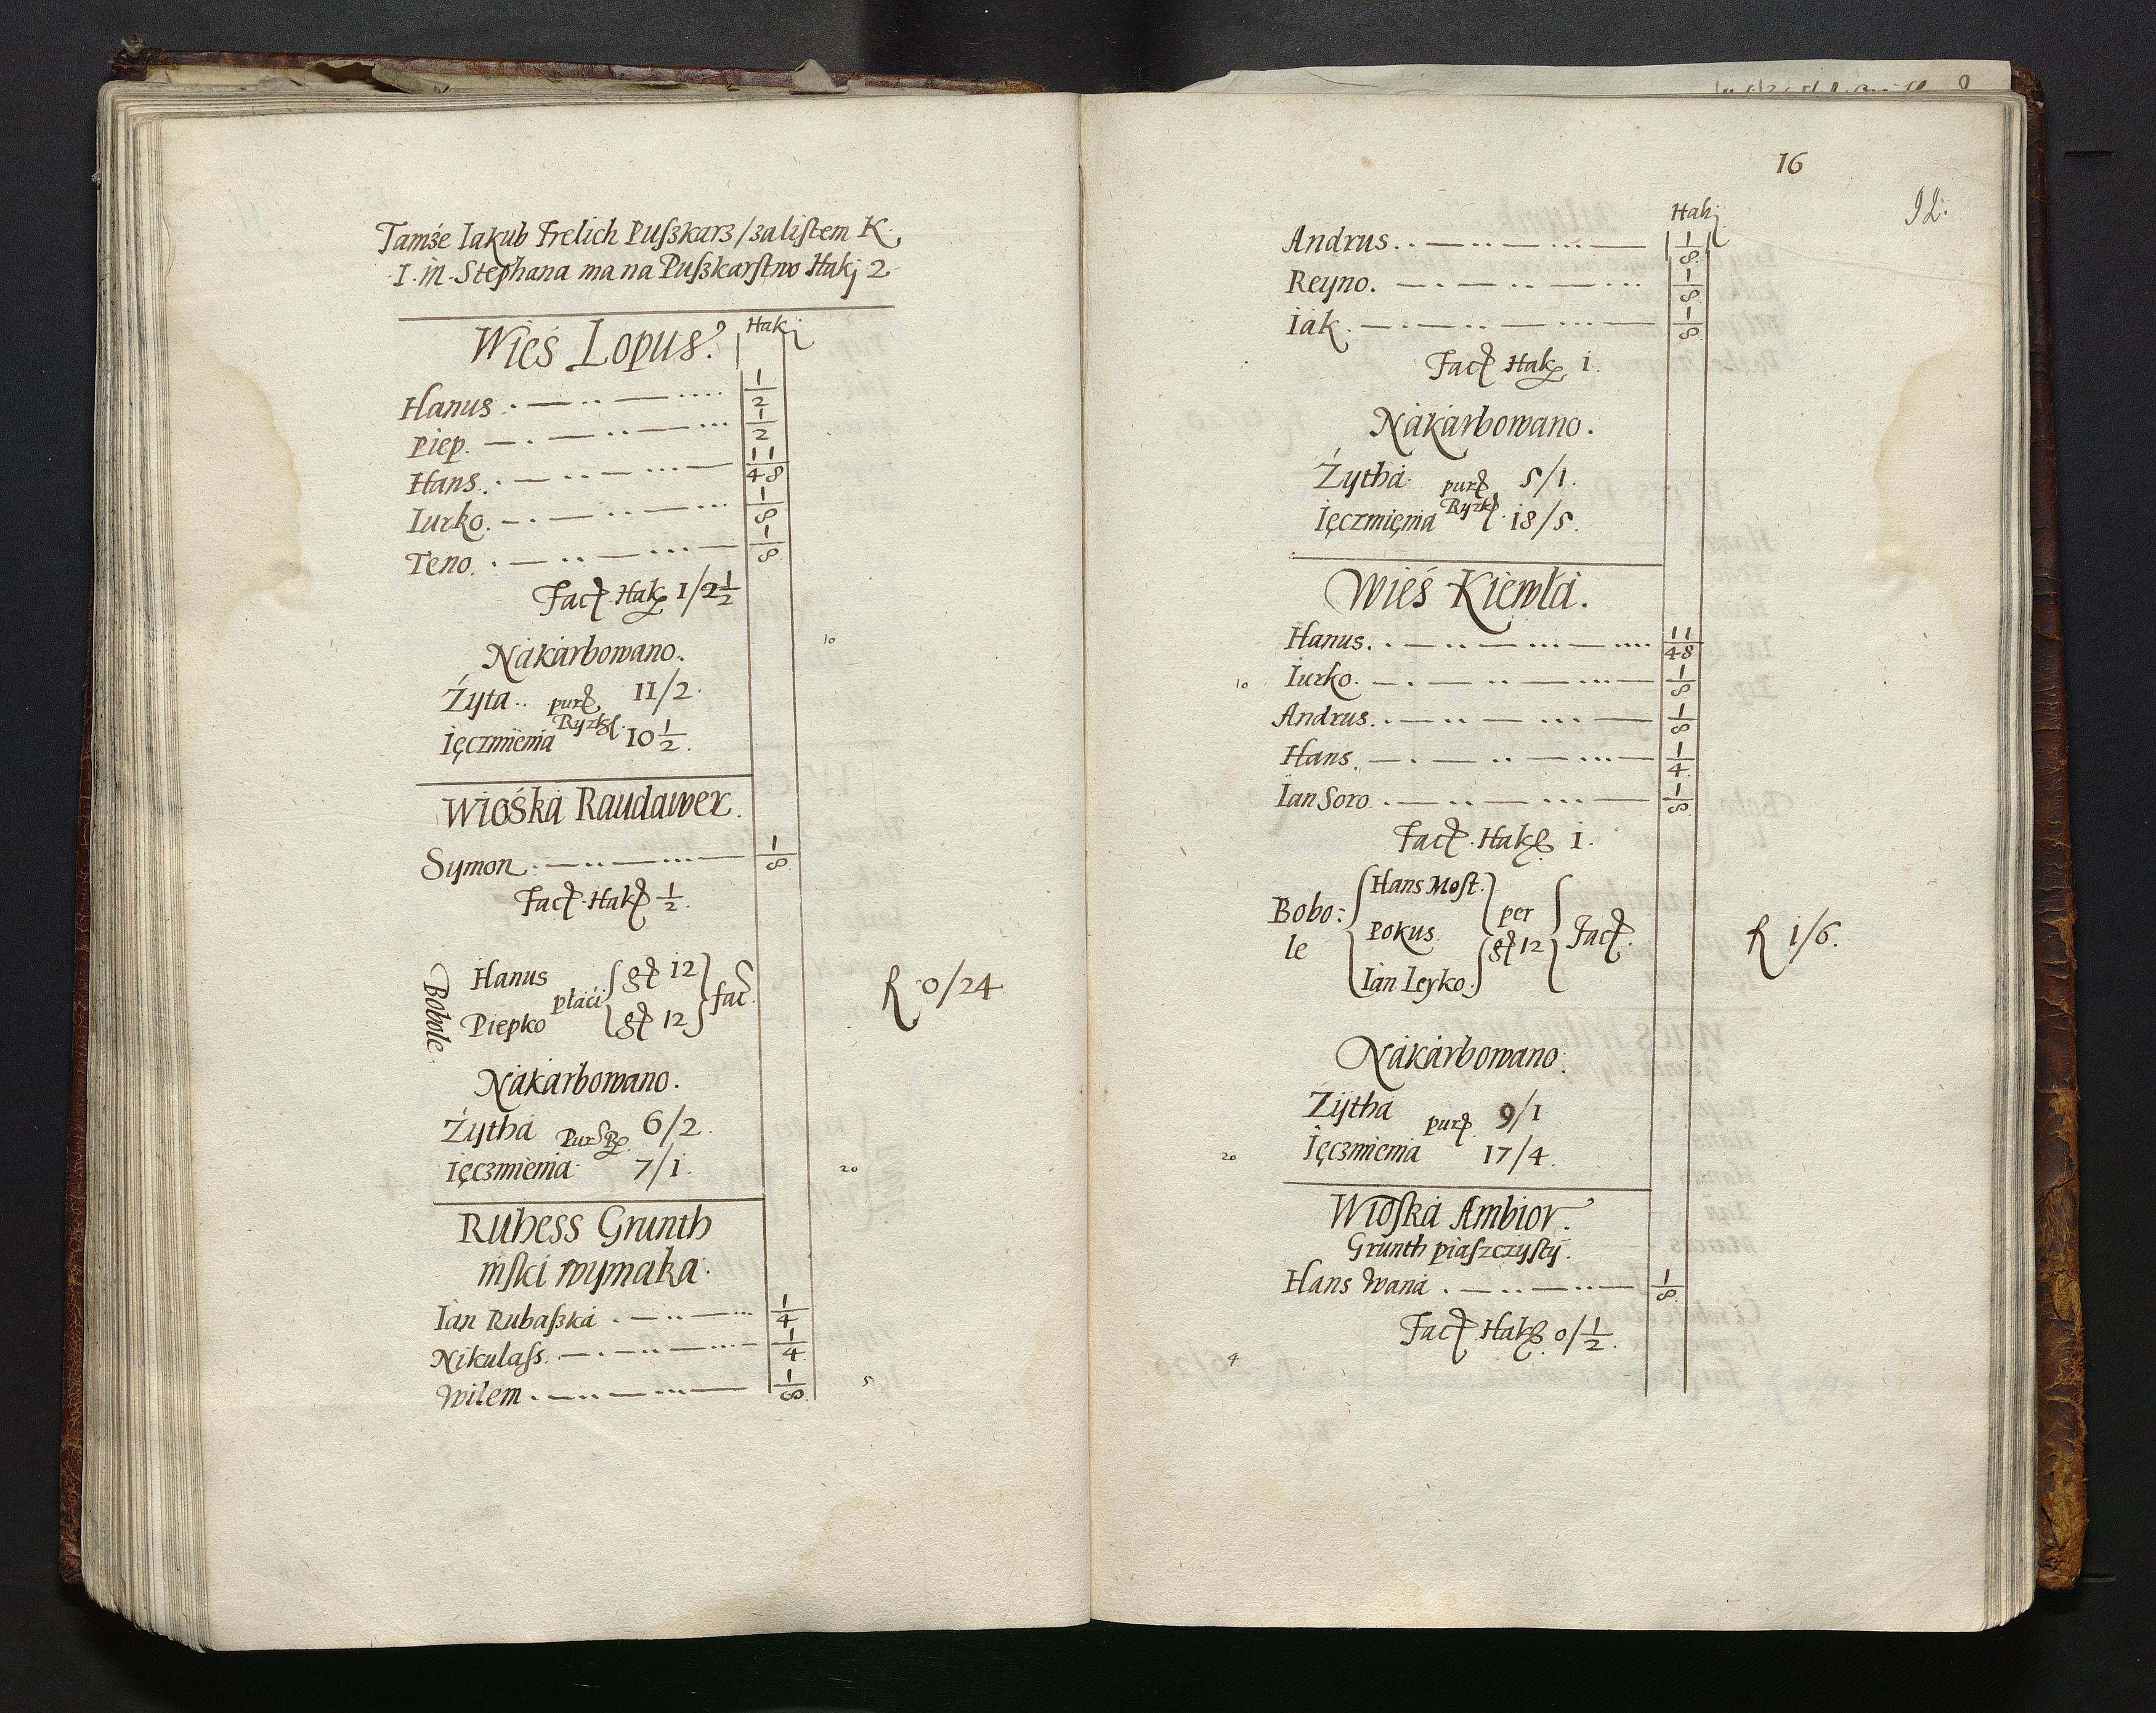 Tamże Iakub Frelich Pußkarz / za listem K.
I. M. Stephana ma na Pußkarstwo Hakj 2
Wieś Lopus. Hakj
Hanus 1/2
Piep. 1/2
Hans. 1/4 1/8
Iurko. 1/8
Teno. 1/8
Fac Hak 1/2 1/2
Nakarbowano.
Żyta pur 11/2.
Ięczmienia Ryzk 10 1/2.
Wioska Raudawer.
Symon 1/8
Fac. Hak 1/2.
Bobole
Hanus płaci g 12 fac. R 0/24
Piepko g 12
Nakarbowano.
Żytha Pur 6/2.
Ięczmienia 7/1.
20
Ruhess Grunth
mści wymaka.
Ian Rubaßka 1/4
Nikulass. 1/4
Wilem 1/8
5
16
92.
Hakj
Andrus. 1/8
Reyno. 1/8
Iak. 1/8
Fac Hak 1.
Nakarbowano.
Żytha pur 5/1.
Ięczmięnia Ryzk 18/5.
Wieś Kiewła.
Hanus. 1/4 1/8
10 Iurko. 1/8
Andrus. 1/8
Hans. 1/4
Ian Soro 1/8
Fac. Hak 1.
Bobo:
le
Hans Most.
Pokus per g 12 Fac. R 1/6.
Ian Leyko.
Nakarbowano.
Żytha pur 9/1
20 Ięczmienia 17/4.
Wioska Ambior.
Grunth piaszczysty.
Hans Wana 1/8
Fac Hak 0/ 1/2.
4